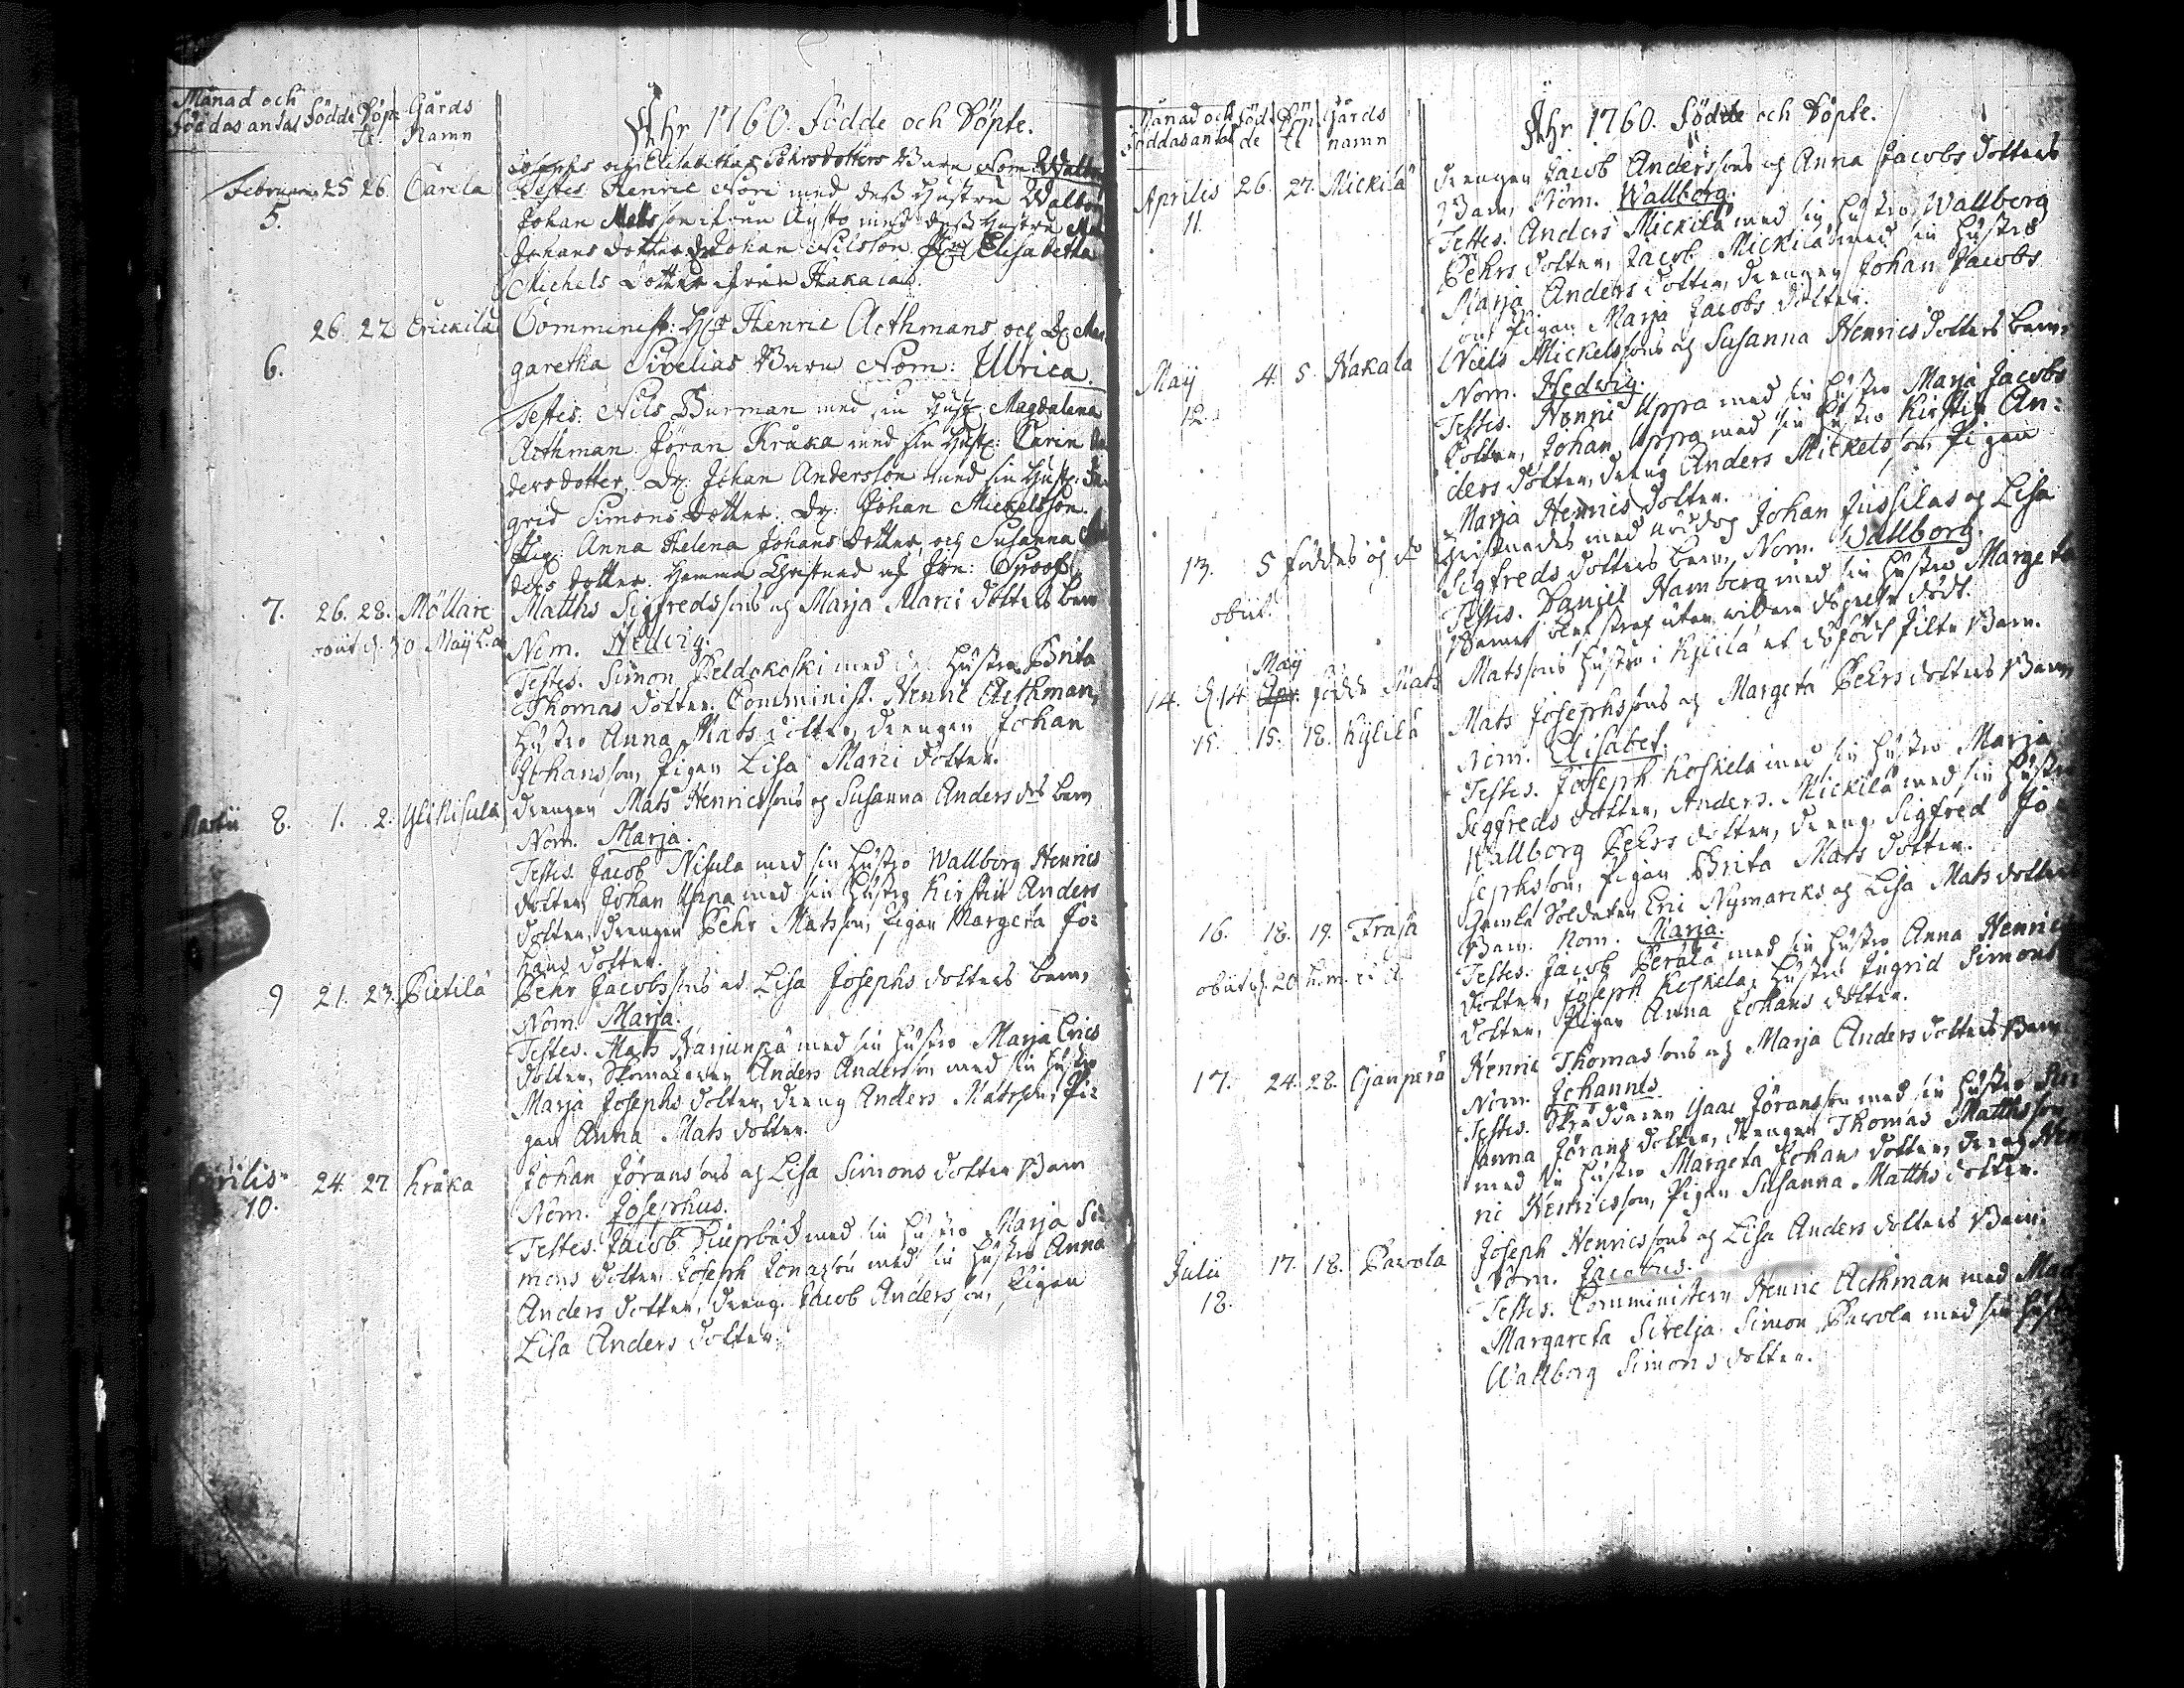 Månad och Födde Döp= Gårds
föddas antal te. Namn
Åhr 1760. Födde och Döpte.
Februarii 25 26. Carela Josephs och Elisabetha Pehrsdotters Barn Nom. Walb
5. Testes. Henric Nori med dess Hustru Walbor
Johan Matsson ifrån med dess Hustru
Johans dotter Dr Johan Nilsson. Elisabetha
Michels Dotter ifrån Hakala.
26. 27. Erickilä Comminist: Henric Aethmans och Mar
6. garetha Sivelias Barn Nom: Ulrica.
Testes: Nils Burman med sin Hust: Magdalena
Aethman. Jöran Kråka med sin Hust: Carin An
dersdotter, Dr: Johan Andersson med sin Hust: In
grid Simonsdotter. Dr: Johan Mickelsson.
Pig: Anna Helena Johans dotter, och Susanna An
ders dotter. Hemma Christnad af
7. 26. 28. Möllare Matths Sigfredssons och Marja Marci dotters barn
obiit d. 30 Maij h. a. Nom. Hedvig.
Testes. Simon Peldokoski med Hustru Brita
Thomas dotter. Comminist. Henric Aethman,
Hustru Anna Mats dotter, drengen Johan
Johansson, Pigan Lisa Marci dotter.
Martii 8. 1. 2. Ylinisula drengen Mats Henricssons och Susanna Anders dots barn
Nom. Marja.
Testes. Jacob Nisula med sin hustro Wallborg Henrics
dotter, Johan Uppa med sin hustro Kirstin Anders
dotter, drengen Pehr Matsson, Pigan Margeta Jo=
hans dotter.
9 21. 23. Pietilä Pehr Jacobssons och Lisa Josephs dotters barn,
Nom. Marja.
Testes. Mats Varjunpä med sin hustro Marja Erics
dotter, Skomakaren Anders Andersson med sin hustro
Marja Josephs dotter, dreng Anders Matsson, Pi=
gan Anna Mats dotter.
Aprilis 24. 27. Kråka Johan Jöranssons och Lisa Simons dotter Barn
10. Nom. Josephus.
Testes. Jacob med sin hustro Marja Si
mons dotter. Joseph Jonasson med sin hustro Anna
Anders dotter, dreng. Jacob Andersson, Pigan
Lisa Anders dotter.
Månad och Föd= Döp Gårds
föddas antal de te namn
Åhr 1760. Födde och Döpte.
Aprilis 26. 27. Mickilä drengen Jacob Anderssons och Anna Jacobs dotters
11. Barn, Nom. Wallborg.
Testes. Anders Mickilä med sin hustro Wallborg
Pehrs dotter, Jacob Mickilä med sin hustro
Marja Anders dotter, drengen Johan Jacobs
son Pigan Marja Jacobs dotter.
Maij 4. 5. Hakala Niels Mickelssons och Susanna Henrics dotters barn,
12. Nom. Hedwig.
Testes. Henric Uppa med sin hustro Marja Jacobs
dotter, Johan Uppa med sin hustro Kirstin An=
ders dotter, dreng Anders Mickelsson, Pigan
Marja Henrics dotter.
13. 5 föddes och Christnades med nöddop Johan Jussilas och Lisa
obiit. Sigfreds dotters barn, Nom. Wallborg.
Testes. Daniel Hamberg med sin hustro Margeta
Barnet blef straf utan widare dödt.
14. d. 14 Maij födde Mats Matssons hustro i Kylilä et dödfödt Piltu Barn.
15. 15. 18. Kylilä Mats Josephssons och Margeta Pehrs dotters Barn
Nom. Elisabet.
Testes. Joseph Koskela med sin hustro Marja
Sigfreds dotter, Anders Mickilä med sin hustro
Wallborg Pehrs dotter, dreng Sigfred Jo
sephsson, Pigan Brita Mats dotter.
16. 18. 19. Fräsä Gamla Soldaten Eric Nymarcks och Lisa Mats dotters
Barn. Nom. Marja.
obiit d. 20 h.m. Testes. Jacob Perälä med sin hustro Anna Henrics
dotter, Joseph Koskela, hustro Ingrid Simons
dotter, Pigan Anna Johans dotter.
17. 24. 28. Ojanperä Henric Thomassons och Marja Anders dotters Barn
Nom. Johannes.
Testes. Skräddaren Isaac Jöransson med sin hustro Su
sanna Jörans dotter, drengen Thomas Matthsson
med sin hustro Margeta Johans dotter, dreng Hen
ric Henricsson, Pigan Susanna Matths dotter.
Julii 17. 18. Pavola Joseph Henricssons och Lisa Anders dotters Barn.
18. Nom. Jacobus.
Testes. Comministern Henric Aethman med Mad
Margareta Sivelja. Simon Pavola med sin hust
Wallborg Simons dotter.